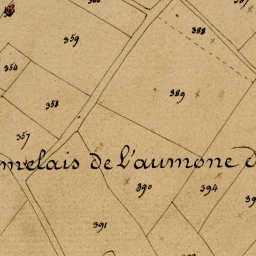 388
359
354
389
358
357
melais de L'aumone d
390
394
391